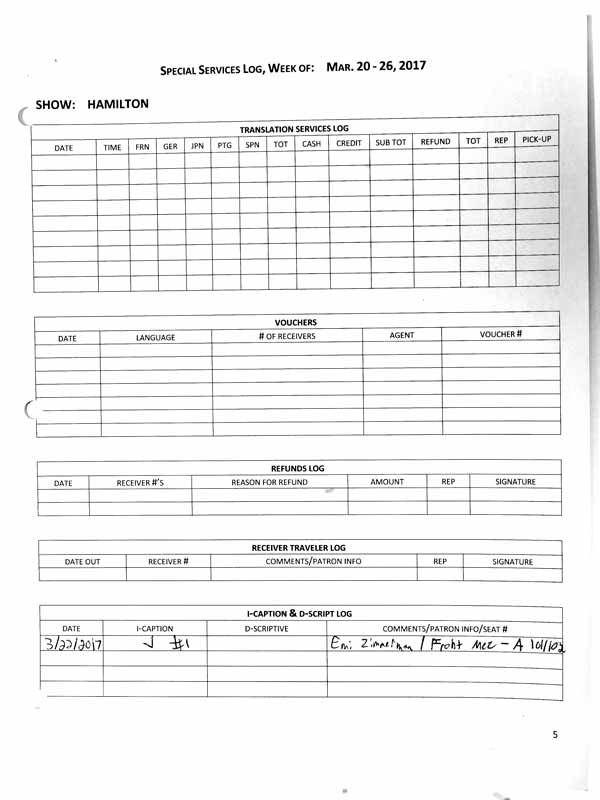 SPECIAL SERVICES LOG, WEEK OF: MAR. 20 - 26, 2017
SHOW: HAMILTON
TRANSLATION SERVICES LOG
DATE TIME FRN GER JPN PTG SPN TOT CASH CREDIT SUB TOT REFUND TOT REP PICK-UP
VOUCHERS
DATE LANGUAGE # OF RECEIVERS AGENT VOUCHER #
REFUNDS LOG
DATE RECEIVER #'S REASON FOR REFUND AMOUNT REP SIGNATURE
RECEIVER TRAVELER LOG
DATE OUT RECEIVER # COMMENTS/PATRON INFO REP SIGNATURE
I-CAPTION & D-SCRIPT LOG
DATE I-CAPTION D-SCRIPTIVE COMMENTS/PATRON INFO/SEAT #
3/22/2017 #1 / Front Mez - A 101/102
5